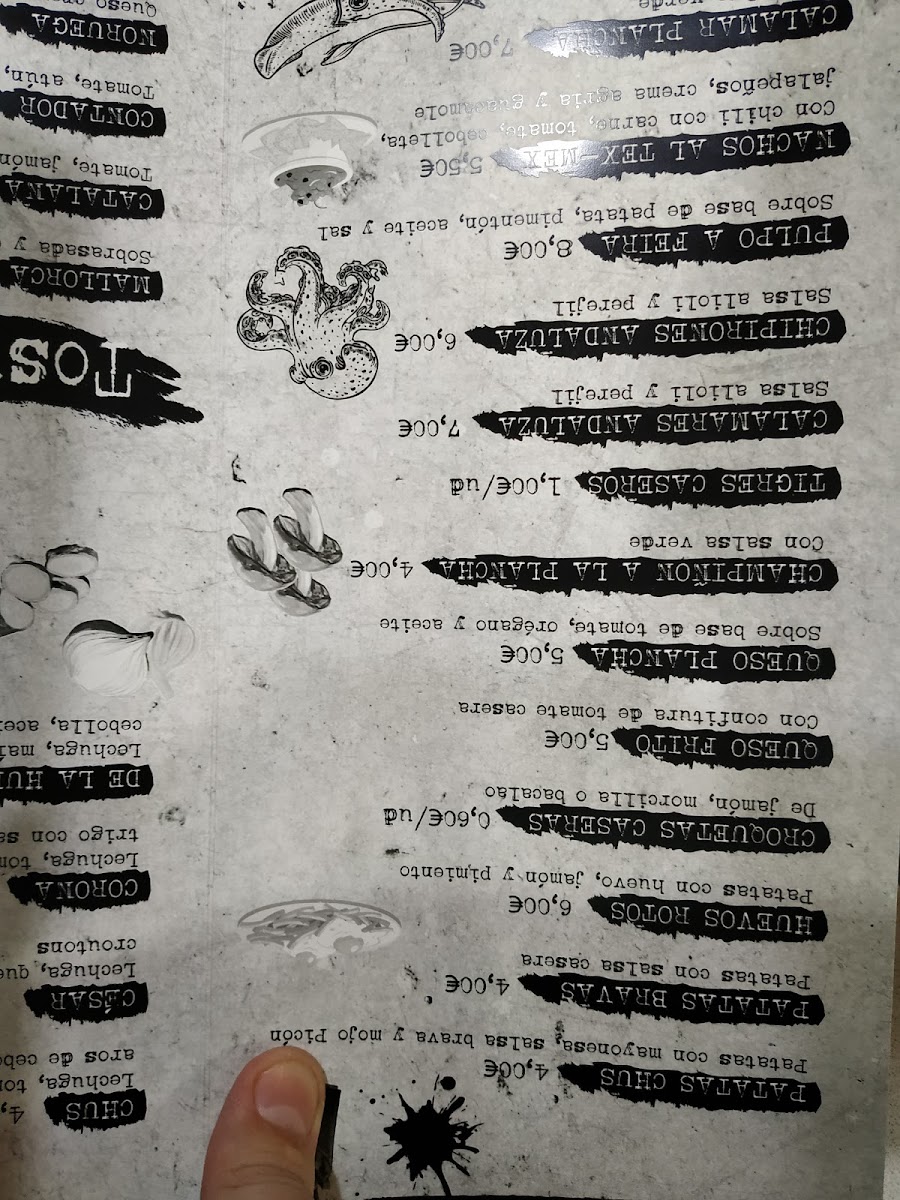 PATATAS CHUS 4,00€
Patatas con mayonesa, salsa brava y mojo Picón
PATATAS BRAVAS 4,00€
Patatas con salsa casera
HUEVOS ROTOS 6,00€
Patatas con huevo, jamón y pimiento
CROQUETAS CASERAS 0,60€/ud
De jamón, morcilla o bacalao
QUESO FRITO 5,00€
Con confitura de tomate casera
QUESO PLANCHA 5,00€
Sobre base de tomate, orégano y aceite
CHAMPIÑON A LA PLANCHA 4,00€
Con salsa verde
TIGRES CASEROS 1,00€/ud
CALAMARES ANDALUZA 7,00€
Salsa alioli y perejil
CHIPIRONES ANDALUZA 6,00€
Salsa alioli y perejil
PULPO A FEIRA 8,00€
Sobre base de patata, pimentón, aceite y sal
NACHOS AL TEX-MEX 5,50€
Con chili con carne, tomate, cebolleta,
jalapeños, crema agria y guacamole
CALAMAR PLANCHA 7,00€
verde
CHUS 4,
Lechuga,
aros de
CÉSAR
Lechuga,
croutons
CORONA
Lechuga,
trigo con
DE LA
Lechuga,
cebolla,
TOS
MALLORCA
Sobrasada y
CATALANA
Tomate, jamón
CONTADOR
Tomate, atún,
NORUEGA
Queso